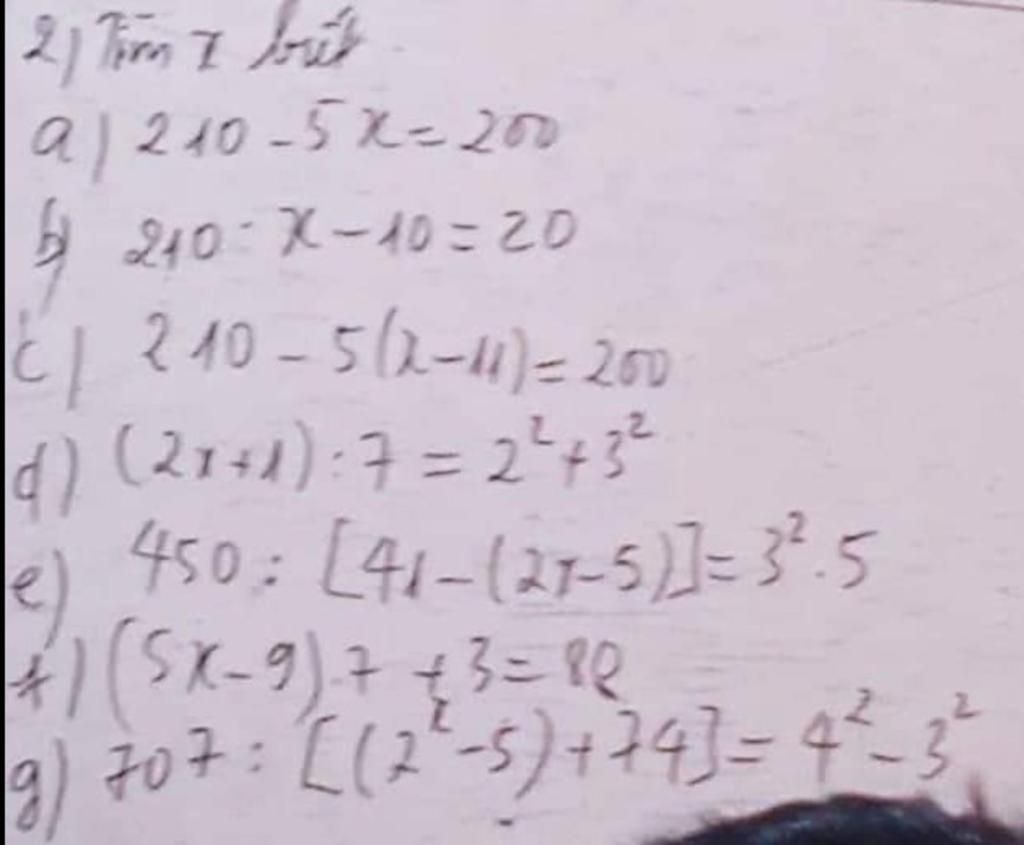 2) Tìm x biết
a) 210 - 5x = 200
b) 210 : x - 10 = 20
c) 210 - 5(x - 11) = 200
d) (2x + 1) : 7 = 2² + 3²
e) 450 : [41 - (2x - 5)] = 3² . 5
f) (5x - 9) . 7 + 3 = 80
g) 707 : [(2ˣ - 5) + 74] = 4² - 3²